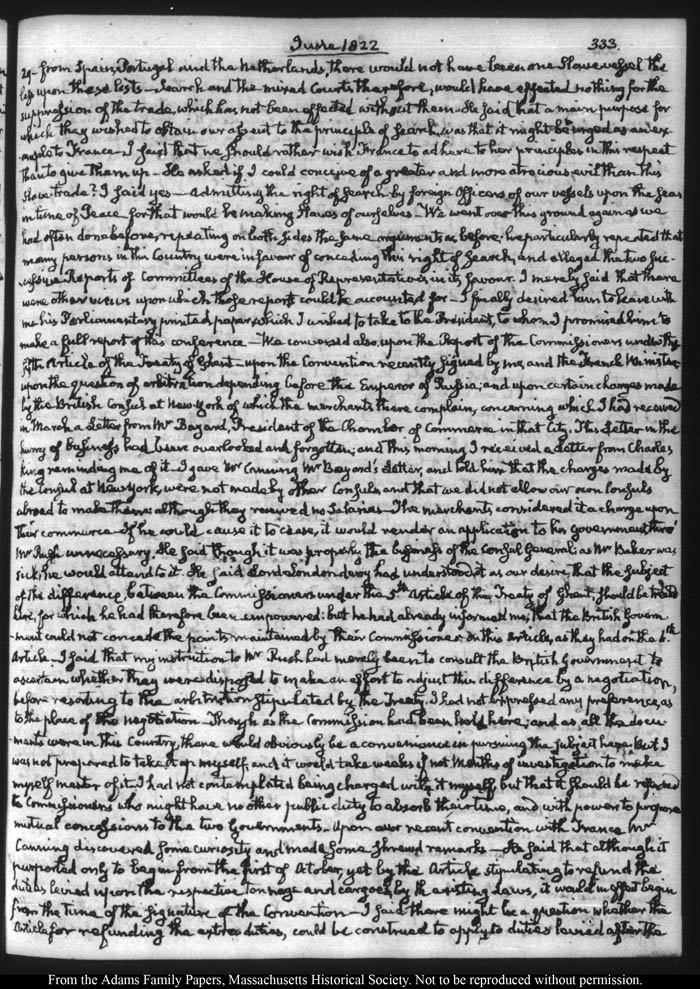 June 1822
333.
29- from Spain, Portugal and the Netherlands, there would not have been one Slave vessel the
less upon those lists - Search and the mixed Courts therefore, would have effected nothing for the
suppression of the trade, which has not been effected without them - He said that a main purpose for
which they wished to obtain our assent to the principle of search, was that it might be urged as an ex-
ample to France - I said that we should rather wish France to adhere to her principles in this respect
than to give them up - He asked if I could conceive of a greater and more atrocious evil than this
Slave trade? I said yes - Admitting the right of search by foreign Officers of our vessels upon the Seas
in time of Peace, for that would be making Slaves of ourselves - We went over this ground again as we
had often done before, repeating on both sides the same arguments as before; he particularly repeated that
many persons in this Country were in favour of conceding this right of Search, and alleged the two suc-
cessive Reports of Committees of the House of Representatives in its favour. I merely said that there
were other views upon which those reports could be accounted for - I finally desired him to leave with
me his Parliamentary printed paper, which I wished to take to the President, to whom I promised him to
make a full report of this conference - We conversed also, upon the Report of the Commissioners under the
Article of the Treaty of Ghent - upon the Convention recently signed by me, and the French Minister,
upon the question of arbitration depending before the Emperor of Russia; and upon certain charges made
by the British Consul at New-York of which the merchants there complain, concerning which I had received
in March a Letter from Mr Bayard, President of the Chamber of Commerce in that City. This Letter in the
hurry of business had been overlooked and forgotten; and this morning I received a Letter from Charles
King reminding me of it - I gave Mr Canning Mr Bayard's Letter, and told him that the charges made by
the Consul at New York, were not made by other Consuls, and that we did not allow our own Consuls
abroad to make them; although they received no Salaries - The merchants considered it a charge upon
their commerce - If he could cause it to cease, it would render an application to his Government thro'
Mr Rush unnecessary. He said though it was properly the business of the Consul General; as Mr Baker was
sick, he would attend to it. He said Lord Londonderry had understood it as our desire, that the subject
of the difference, between the Commissioners under the 5th Article of the Treaty of Ghent, should be treated
here, for which he had therefore been empowered: but he had already informed me, that the British Govern-
ment could not concede the points maintained by their Commissioner on this Article, as they had on the 6th
Article - I said that my instruction to Mr Rush had merely been to consult the British Government to
ascertain whether they were disposed to make an effort to adjust this difference by a negotiation,
before resorting to the arbitration stipulated by the Treaty. I had not expressed any preference, as
to the place of the negotiation - Though as the Commission had been held here; and as all the docu-
ments were in this Country, there would obviously be a convenience in pursuing the subject here. But I
was not prepared to take it up myself, and it would take weeks if not Months of investigation to make
myself master of it. I had not contemplated being charged with it myself, but that it should be referred
to Commissioners who might have no other public duty to absorb their time, and with power to propose
mutual concessions to the two Governments. Upon our recent convention with France Mr
Canning discovered some curiosity and made some shrewd remarks - He said that although it
purported only to begin from the first of October, yet by the Article stipulating to refund the
duties levied upon the respective tonnage and cargoes, by the existing Laws, it would in effect begin
from the time of the signature of the Convention - I said there might be a question whether the
Article for refunding the extra duties, could be construed to apply to duties levied after the
From the Adams Family Papers, Massachusetts Historical Society. Not to be reproduced without permission.